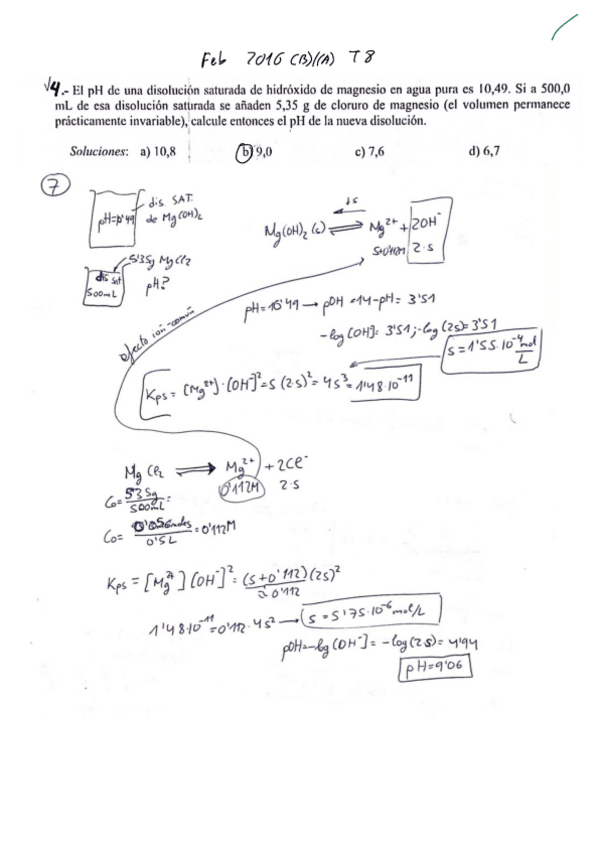 Feb 2016 (B)((A) T8
√4.- El pH de una disolución saturada de hidróxido de magnesio en agua pura es 10,49. Si a 500,0
mL de esa disolución saturada se añaden 5,35 g de cloruro de magnesio (el volumen permanece
prácticamente invariable), calcule entonces el pH de la nueva disolución.
Soluciones: a) 10,8 b) 9,0 c) 7,6 d) 6,7
7
dis. SAT.
de Mg(OH)₂
pH=10'49
Mg(OH)₂ (s) ⇌ Mg²⁺ + 2OH⁻
↓s
S+0'112M 2·S
5'35g MgCl2
dis sat
500mL
pH?
efecto ion-común
pH=10'49 → pOH=14-pH= 3'51
-log[OH]= 3'51; -log(2s)=3'51
s=1'55·10⁻⁴ mol/L
Kps = [Mg²⁺]·[OH]²=S(2·s)²=4s³=1'48·10⁻¹¹
MgCl2 ⇌ Mg²⁺ + 2Cl⁻
0'112M 2·S
Co= 5'35g/500mL =
Co= 0'056moles/0'5L =0'112M
Kps = [Mg²⁺][OH⁻]²= (s+0'112)(2s)²
≈0'112
1'48·10⁻¹¹=0'112·4s² → s=5'75·10⁻⁶ mol/L
pOH=-log(OH⁻]= -log(2·S)= 4'94
pH=9'06